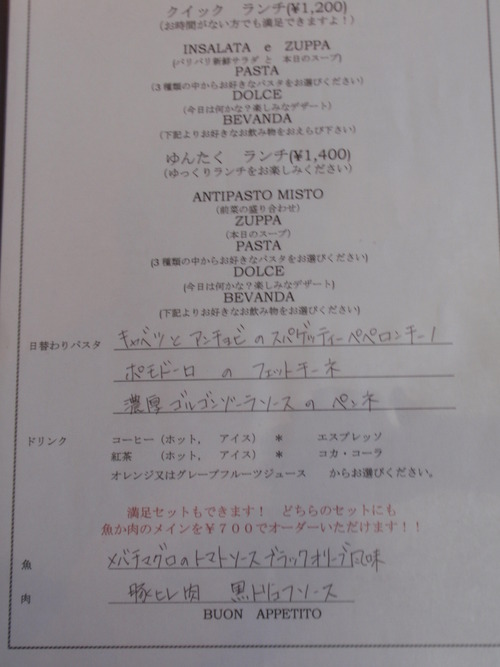 クイック ランチ(¥1,200)
（お時間がない方でも満足できますよ！）
INSALATA e ZUPPA
(パリパリ新鮮サラダ と 本日のスープ)
PASTA
(3種類の中からお好きなパスタをお選びください)
DOLCE
（今日は何かな？楽しみなデザート）
BEVANDA
（下記よりお好きなお飲み物をおえらび下さい）
ゆんたく ランチ(¥1,400)
（ゆっくりランチをお楽しみください）
ANTIPASTO MISTO
（前菜の盛り合わせ）
ZUPPA
（本日のスープ）
PASTA
(3種類の中からお好きなパスタをお選びください)
DOLCE
（今日は何かな？楽しみなデザート）
BEVANDA
（下記よりお好きなお飲み物をお選びください）
日替わりパスタ キャベツとアンチョビのスパゲッティーペペロンチーノ
ポモドーロ の フェットチーネ
濃厚ゴルゴンゾーラソースの ペンネ
ドリンク コーヒー（ホット， アイス） ＊ エスプレッソ
紅茶 （ホット， アイス） ＊ コカ・コーラ
オレンジ又はグレープフルーツジュース からお選びください。
満足セットもできます！ どちらのセットにも
魚か肉のメインを￥７００でオーダーいただけます！！
魚 メバチマグロのトマトソースブラックオリーブ風味
肉 豚ヒレ肉 黒トリュフソース
BUON APPETITO